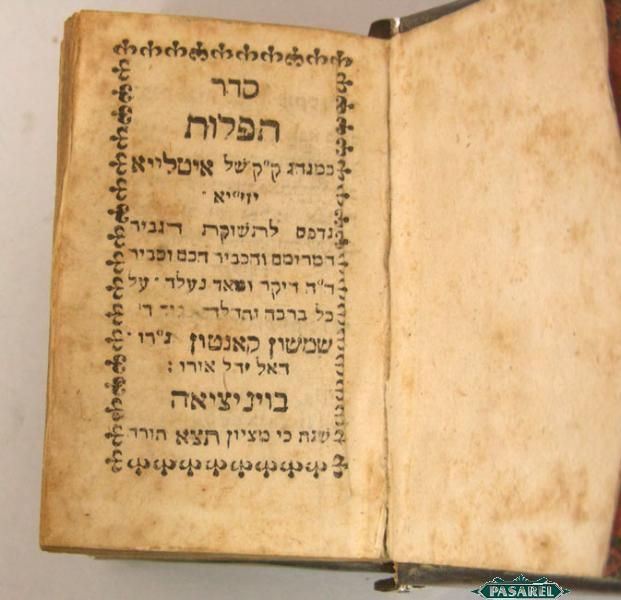 סדר
תפלות
כמנהג ק״ק של איטלייא
יזי״א
נדפס לתשוקת הגביר
המרומם והכביר חכם וסביר
ה״ה היקר ומאד נעלה על
כל ברכה ותהלה
שמשון קאנטון נ״רו
דאל
בויניציאה
שנת כי מציון תצא תורה
PASAREL